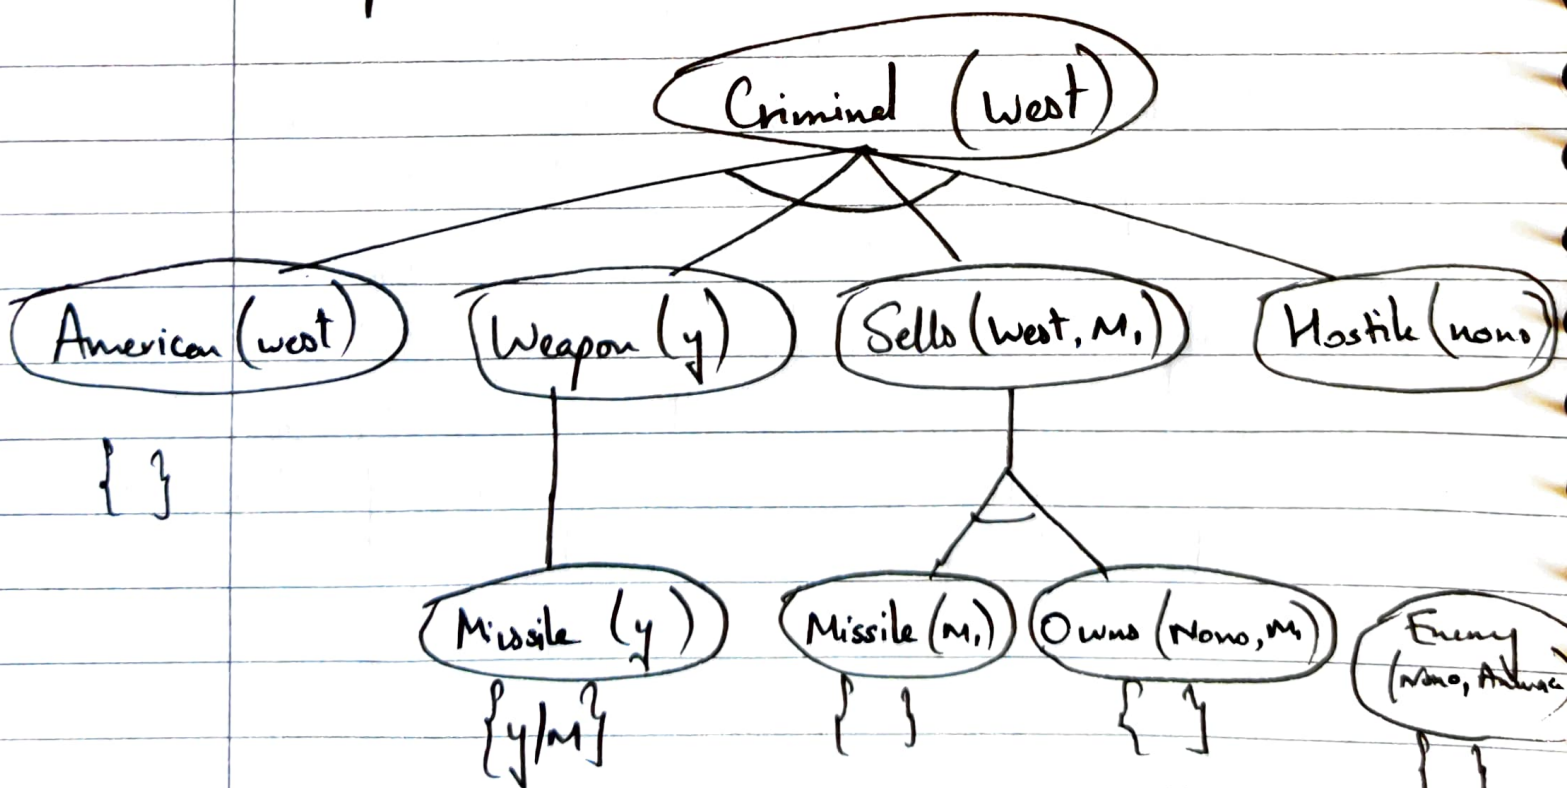 Criminal (west)
American (west) Weapon (y) Sells (west, M1) Hostile (nono)
{ }
Missile (y) Missile (M1) Owns (Nono, M1) Enemy
(Nono,
{y/M} { } { } { }